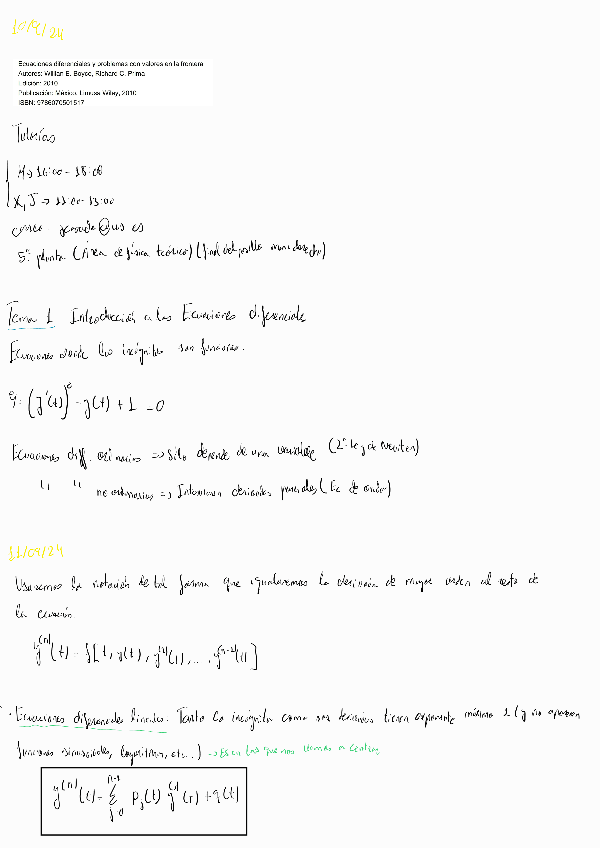 Ecuaciones diferenciales y problemas con valores en la frontera
Autores: William E. Boyce, Richard C. Prima
Edición: 2010
Publicación: México, Limusa Wiley, 2010
ISBN: 9786070501517
Tutorías
M → 16:00 - 18:00
X, J → 11:00 - 13:00
correo @us es
5ª planta (Área de física teórica) (final del pasillo mano derecha)
Tema 1 Introducción a las Ecuaciones diferenciales
Ecuaciones donde las incógnitas son funciones.
(y'(t)) - y(t) + 1 = 0
Ecuaciones diff. ordinarias => Sólo depende de una variable (2ª Ley de Newton)
" " no ordinarias => Intervienen derivadas parciales (Ec de onda)
11/09/24
Usaremos la notación de tal forma que igualaremos la derivada de mayor orden al resto de
la ecuación
y^(n)(t) = f[t, y(t), , ... , ]
· Ecuaciones diferenciales lineales. Tanto la incógnita como sus derivadas tienen exponente máximo 1 (y no aparecen
funciones sinusoidales, logaritmos, etc...) → Es en las que nos vamos a centrar
y^(n)(t) = Σ_{j=0}^{n-1} P_j(t) y^(j)(t) + q(t)